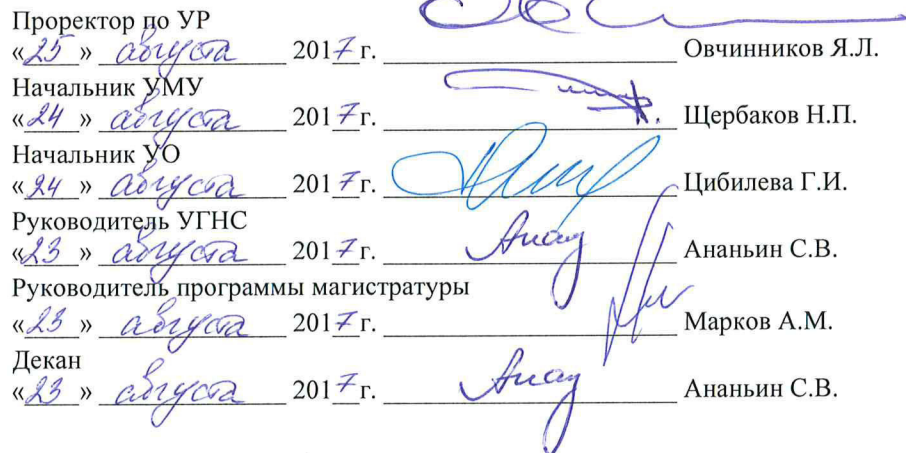 Проректор по УР
«25» августа 2017 г. Овчинников Я.Л.
Начальник УМУ
«24» августа 2017 г. Щербаков Н.П.
Начальник УО
«24» августа 2017 г. Цибилева Г.И.
Руководитель УГНС
«23» августа 2017 г. Ананьин С.В.
Руководитель программы магистратуры
«23» августа 2017 г. Марков А.М.
Декан
«23» августа 2017 г. Ананьин С.В.